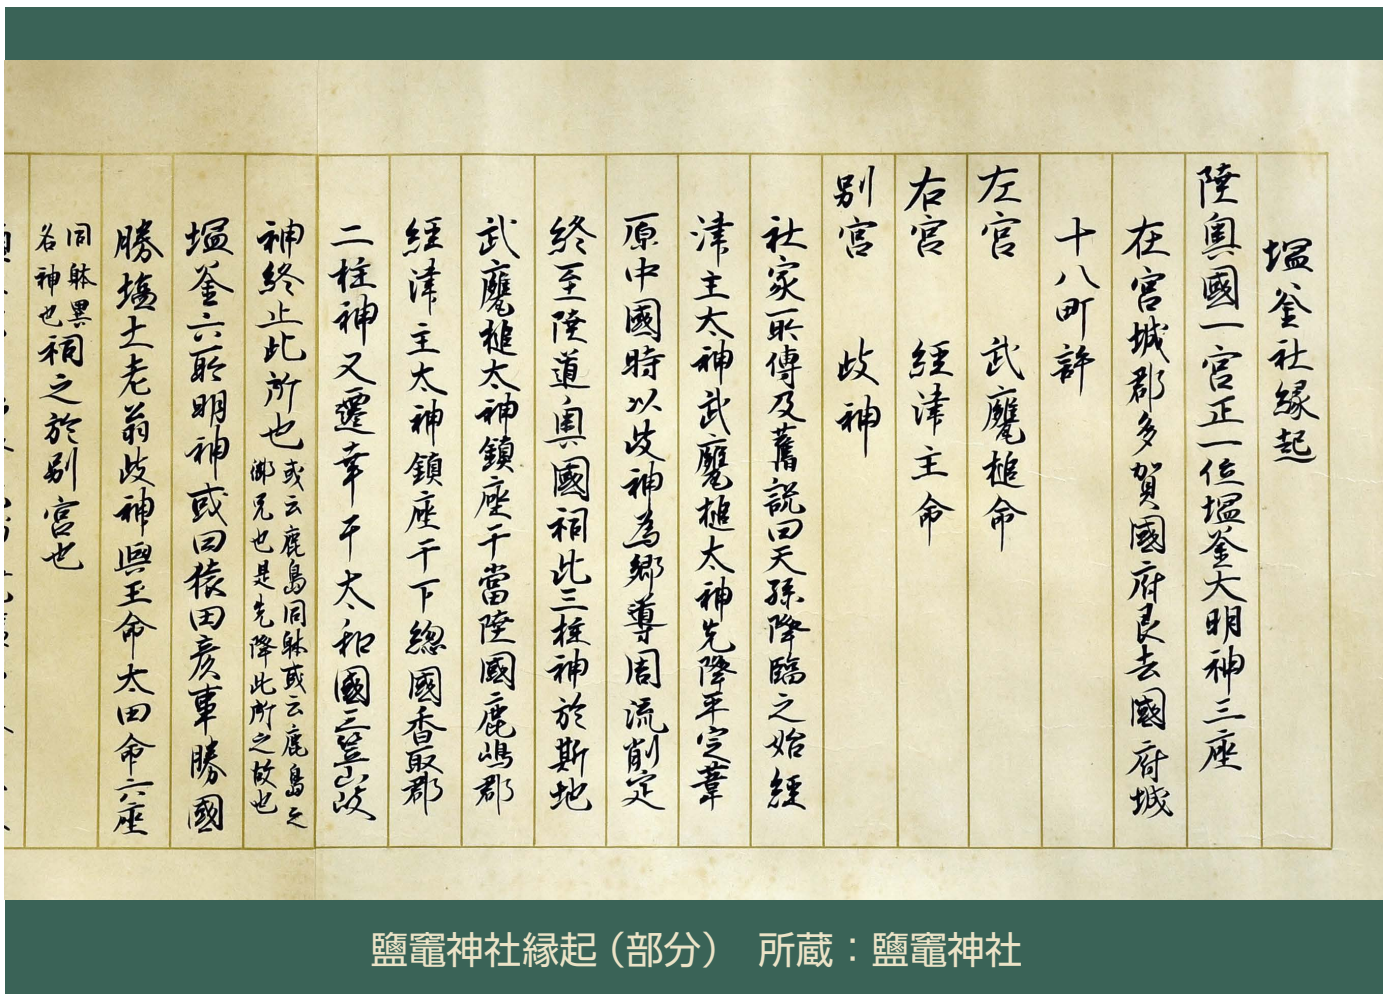 塩釜社縁起
陸奥國一宮正一位塩釜大明神三座
在宮城郡多賀國府艮去國府城
十八町許
左宮 武甕槌命
右宮 經津主命
別宮 岐神
社家所傳及舊説曰天孫降臨之始經
津主太神武甕槌太神先降平定葦
原中國時以岐神為郷導周流削定
終至陸道奥國祠此三柱神於斯地
武甕槌太神鎮座于當陸國鹿嶋郡
經津主太神鎮座于下總國香取郡
二柱神又遷幸于大和國三笠山岐
神終止此所也
或云鹿島同躰或云鹿島之
御兄也是先降此所之故也
塩釜六所明神或曰猿田彦事勝國
勝塩土老翁岐神興玉命太田命六座
同躰異
名神也
祠之於別宮也
鹽竈神社縁起（部分） 所蔵：鹽竈神社